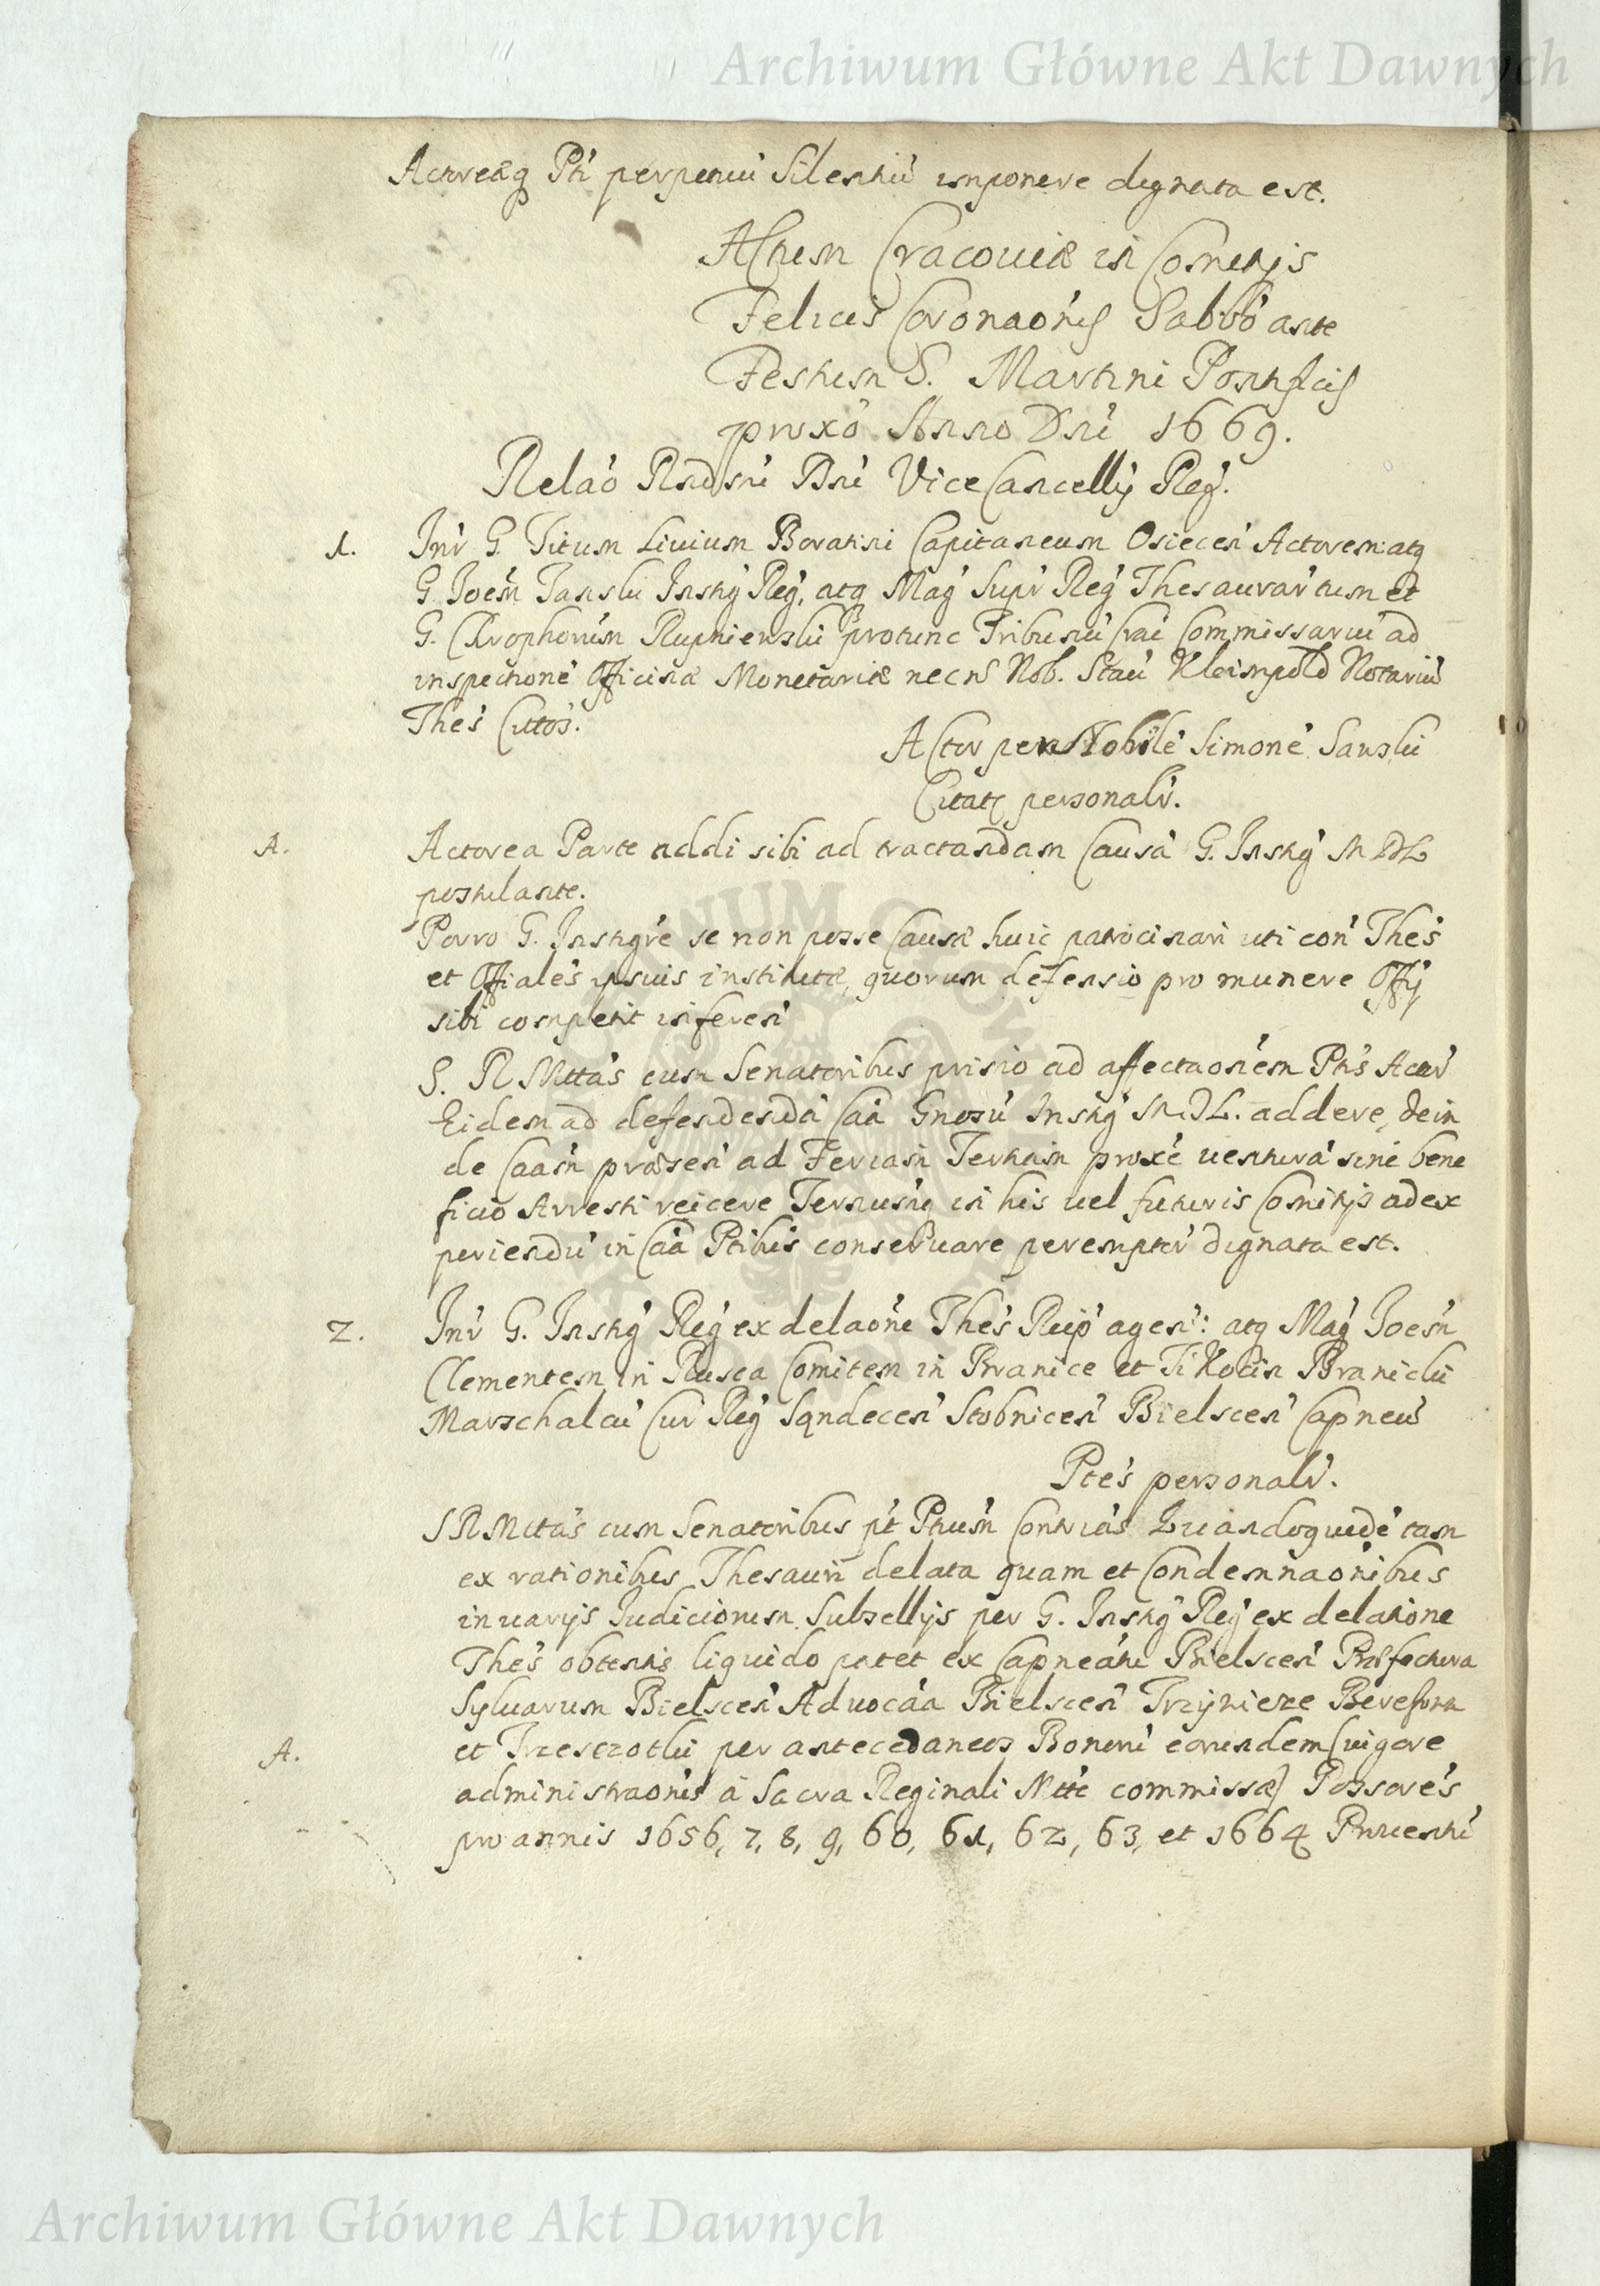 Archiwum Główne Akt Dawnych
Actoreæq Pti perpetuu Silentiu imponere dignata est.
Actum Cracouiæ in Comitijs
Felicis Coronaonis Sabbo ante
Festum S. Martini Pontificis
proxo Anno Dni 1669.
Relao Rndsmi Dni ViceCancellij Reg.
1. Inr G. Titum Liuium Boratini Capitaneum Osiecen Actorem: atq
G. Joem Tanski Instig Reg, atq Mag Supr Reg Thesaurarium et
G. Chrophorum Rupniewski protunc Tribunu Commissariu ad
inspectione Officinæ Monetariæ necn Nob. Stau Kleinpold Notariu
Thes Cittos.
Actor per Nobile Simone
Citati personalr.
A. Actorea Parte addi sibi ad tractandam Causa G. Instig M D L
postulante.
Porro G. Instigre se non posse Causæ huic patrocinari uti con Thes
et Offiales ipsius institutæ, quorum defensio pro munere Offij
sibi competit inferen
S. R Mttas cum Senatoribus primo ad affectaonem Ptis Actr
Eidem ad defendenda Caa Gnosu Instig M. D L. addere, dein
de Caam præsen ad Feriam Tertiam proxe uentura sine bene
ficio Arresti reicere Terminu in his uel futuris Comitijs ad ex
periendu in Caa Ptibus conseruare peremptir dignata est.
2. Inr G. Instig Reg ex delaone Thes Reip agen: atq Mag Joem
Clementem in Rusca Comitem in Branice et Tikocin Branicki
Marschalcu Cur Reg Sqndecen Stobnicen Bielscen Capneu
Ptes personalr.
S R Mttas cum Senatoribus pt Ptium Contrias Quandoquide tam
ex rationibus Thesauri delata quam et Condemnaonibus
in uarijs Judiciorum Subsellijs per G. Instig Reg ex delatione
Thes obtentis liquido patet ex Capneatu Bielscen Præfectura
Syluarum Bielscen Aduocaa Bielscen
A. et per antecedaneos Bonoru eorundem (uigore
administraonis a Sacra Reginali Mtte commissæ) Possores
pro annis 1656, 7, 8, 9, 60, 61, 62, 63, et 1664 Prouentu
Archiwum Główne Akt Dawnych